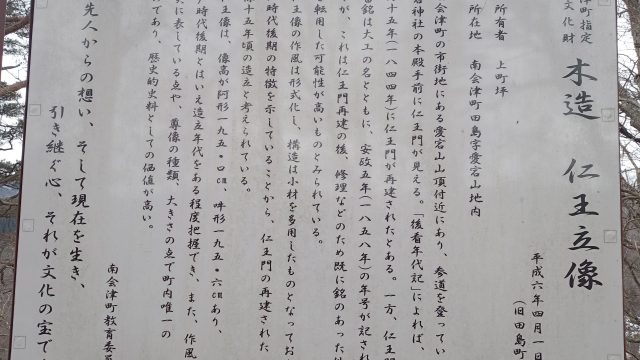 津町指定
文化財
木造 仁王立像
平成六年四月一日
(旧田島町
所有者 上町坪
所在地 南会津町田島字愛宕山地内
会津町の市街地にある愛宕山山頂付近にあり、参道を登ってい
宕神社の本殿手前に仁王門が見える。「後看年代記」によれば、
十五年(一八四四年)に仁王門が再建されたとある。一方、仁王門
銘は大工の名とともに、安政五年(一八五八年)の年号が記され
が、これは仁王門再建の後、修理などのため既に銘のあった
転用した可能性が高いものとみられている。
王像の作風は形式化し、構造は小材を多用したものとなってお
時代後期の特徴を示していることから、仁王門の再建された
十五年頃の造立と考えられている。
王像は、像高が阿形一九五・〇㎝、吽形一九五・六㎝あり、
時代後期とはいえ造立年代をある程度把握でき、また、作風
実に表している点や、尊像の種類、大きさの点で町内唯一の
であり、歴史的史料としての価値が高い。
南会津町教育委員
先人からの想い、そして現在を生き、
引き継ぐ心、それが文化の宝で